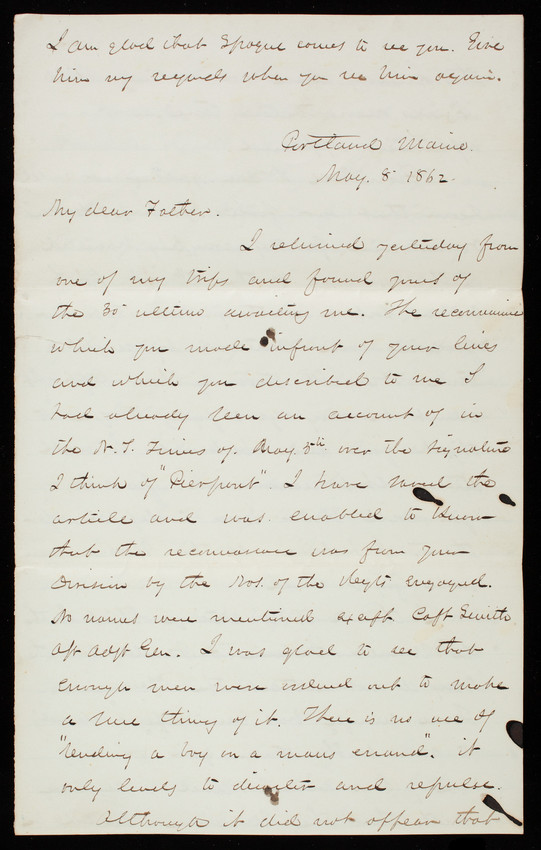 I am glad that Sprague comes to see you. Give
him my regards when you see him again.
Portland Maine.
May. 8 1862.
My dear Father.
I returned yesterday from
one of my trips and found yours of
the 30 ultimo awaiting me. The reconnaissance
which you made infront of your lines
and which you described to me I
had already seen an account of in
the N. Y. Times of. May. 5th over the signature
I think of "Pierpont". I have saved the
article and was enabled to know
that the reconnaissance was from your
Division by the Nos. of the Regts engaged.
No names were mentioned except Capt Smith
Ast Adjt Gen. I was glad to see that
enough men were ordered out to make
a sure thing of it. There is no use of
"sending a boy on a mans errand". it
only leads to disaster and repulse.
Although it did not appear that